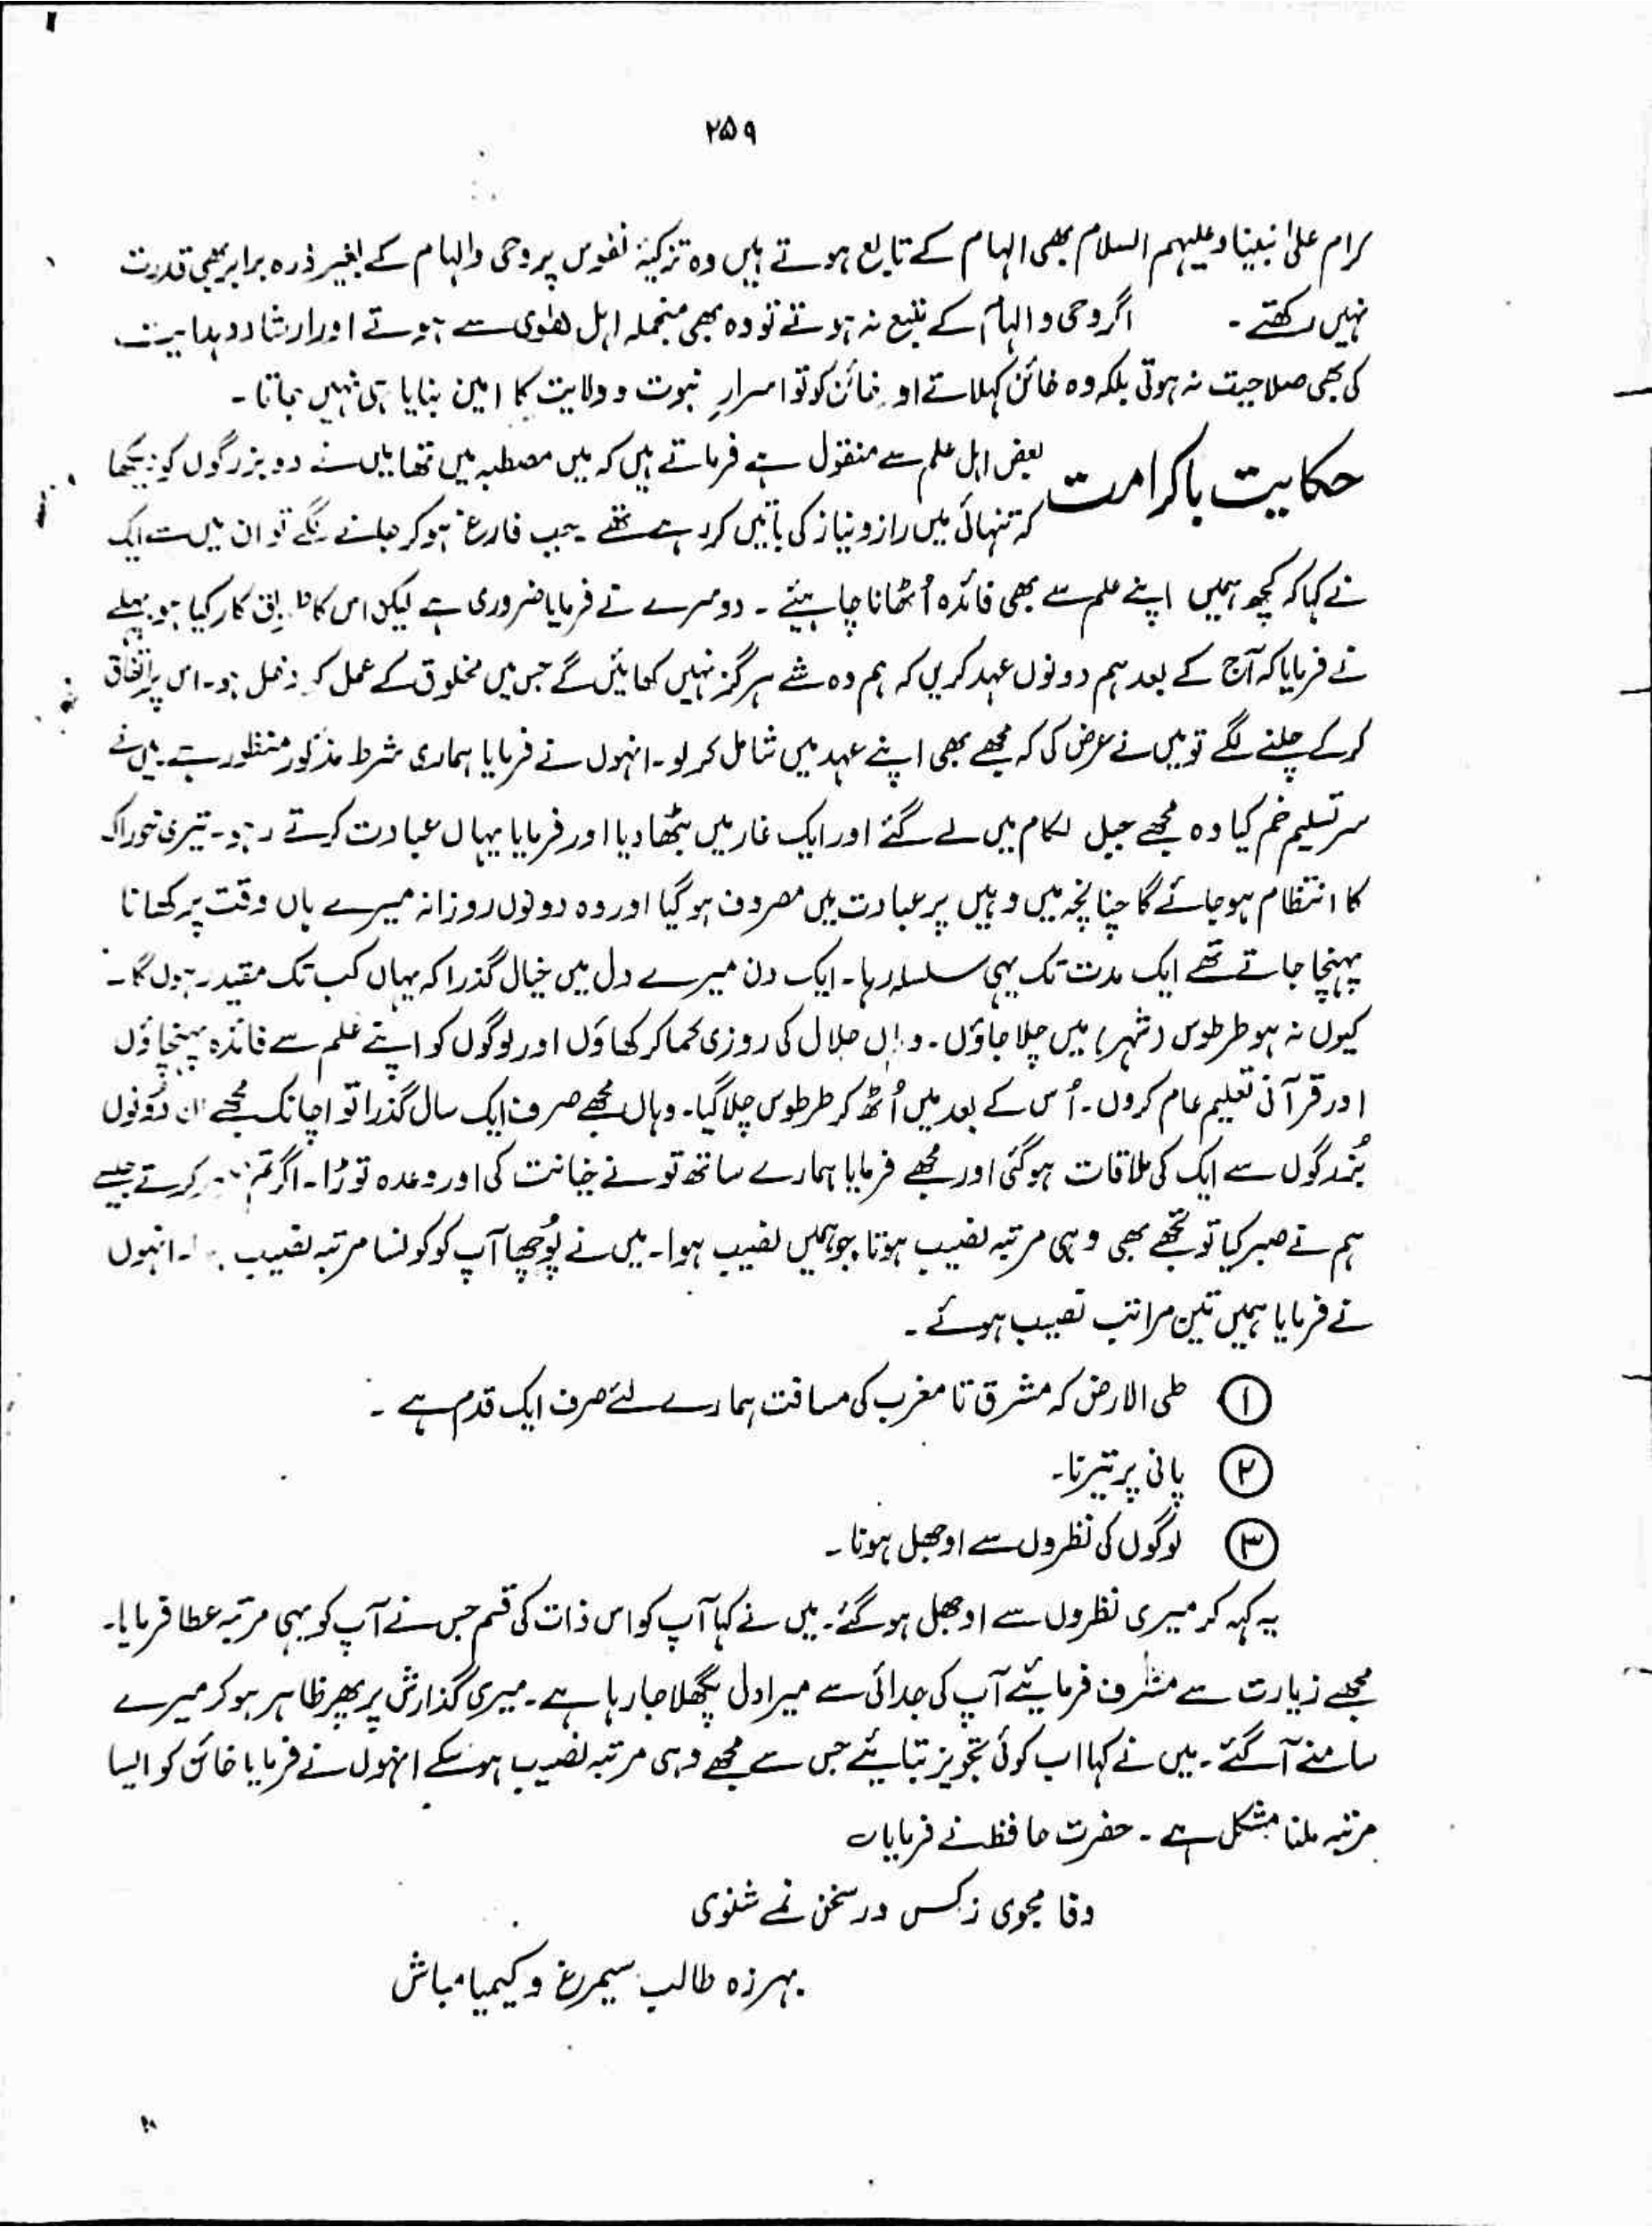 ۲۵۹
کرام علیٰ نبینا وعلیہم السلام بھی الہام کے تابع ہوتے ہیں وہ تزکیۂ نفوس پر وحی والہام کے بغیر ذرہ برابر بھی قدرت
نہیں رکھتے ۔ اگر وحی و الہام کے متبع نہ ہوتے تو وہ بھی منجملہ اہل ھٰوی سے ہوتے اور ارشاد و ہدایت
کی بھی صلاحیت نہ ہوتی بلکہ وہ خائن کہلاتے اور خائن کو تو اسرارِ نبوت و ولایت کا امین بنایا ہی نہیں جاتا ۔
حکایت باکرامت بعض اہل علم سے منقول ہے فرماتے ہیں کہ میں مصطبہ میں تھا میں نے دو بزرگوں کو دیکھا
کہ تنہائی میں راز و نیاز کی باتیں کر رہے تھے ۔ جب فارغ ہو کر چلنے لگے تو ان میں سے ایک
نے کہا کہ کچھ ہمیں اپنے علم سے بھی فائدہ اُٹھانا چاہیئے ۔ دوسرے نے فرمایا ضروری ہے لیکن اس کا طریق کار کیا ہو پہلے
نے فرمایا کہ آج کے بعد ہم دونوں عہد کریں کہ ہم وہ شے ہرگز نہیں کھائیں گے جس میں مخلوق کے عمل کو دخل ہو ۔ اس پر اتفاق
کر کے چلنے لگے تو میں نے عرض کی کہ مجھے بھی اپنے عہد میں شامل کر لو ۔ انہوں نے فرمایا ہماری شرط مذکور منظور ہے ۔ میں نے
سرتسلیم خم کیا وہ مجھے جبل لکام میں لے گئے اور ایک غار میں بٹھا دیا اور فرمایا یہاں عبادت کرتے رہو ۔ تیری خوراک
کا انتظام ہو جائے گا چنانچہ میں وہیں پر عبادت میں مصروف ہو گیا اور وہ دونوں روزانہ میرے ہاں وقت پر کھانا
پہنچا جاتے تھے ایک مدت تک یہی سلسلہ رہا ۔ ایک دن میرے دل میں خیال گذرا کہ یہاں کب تک مقید رہوں گا ۔
کیوں نہ ہو طرطوس (شہر) میں چلا جاؤں ۔ وہاں حلال کی روزی کما کر کھاؤں اور لوگوں کو اپنے علم سے فائدہ پہنچاؤں
اور قرآنی تعلیم عام کروں ۔ اُس کے بعد میں اُٹھ کر طرطوس چلا گیا ۔ وہاں مجھے صرف ایک سال گذرا تو اچانک مجھے ان دونوں
بُزرگوں سے ایک کی ملاقات ہو گئی اور مجھے فرمایا ہمارے ساتھ تو نے خیانت کی اور وعدہ توڑا ۔ اگر تم کرتے جیسے
ہم نے صبر کیا تو تجھے بھی وہی مرتبہ نصیب ہوتا جو ہمیں نصیب ہوا ۔ میں نے پُوچھا آپ کو کونسا مرتبہ نصیب ۔ انہوں
نے فرمایا ہمیں تین مراتب نصیب ہوئے ۔
① طی الارض کہ مشرق تا مغرب کی مسافت ہمارے لئے صرف ایک قدم ہے ۔
② پانی پر تیرنا ۔
③ لوگوں کی نظروں سے اوجھل ہونا ۔
یہ کہہ کر میری نظروں سے اوجھل ہو گئے ۔ میں نے کہا آپ کو اس ذات کی قسم جس نے آپ کو یہی مرتبہ عطا فرمایا ۔
مجھے زیارت سے مشرف فرمائیے آپ کی جدائی سے میرا دل پگھلا جا رہا ہے ۔ میری گذارش پر پھر ظاہر ہو کر میرے
سامنے آ گئے ۔ میں نے کہا اب کوئی تجویز بتائیے جس سے مجھے وہی مرتبہ نصیب ہو سکے انہوں نے فرمایا خائن کو ایسا
مرتبہ ملنا مشکل ہے ۔ حضرت حافظ نے فرمایا ؎
وفا مجوی زکس در سخن نمے شنوی
بہرزہ طالب سیمرغ و کیمیا مباش